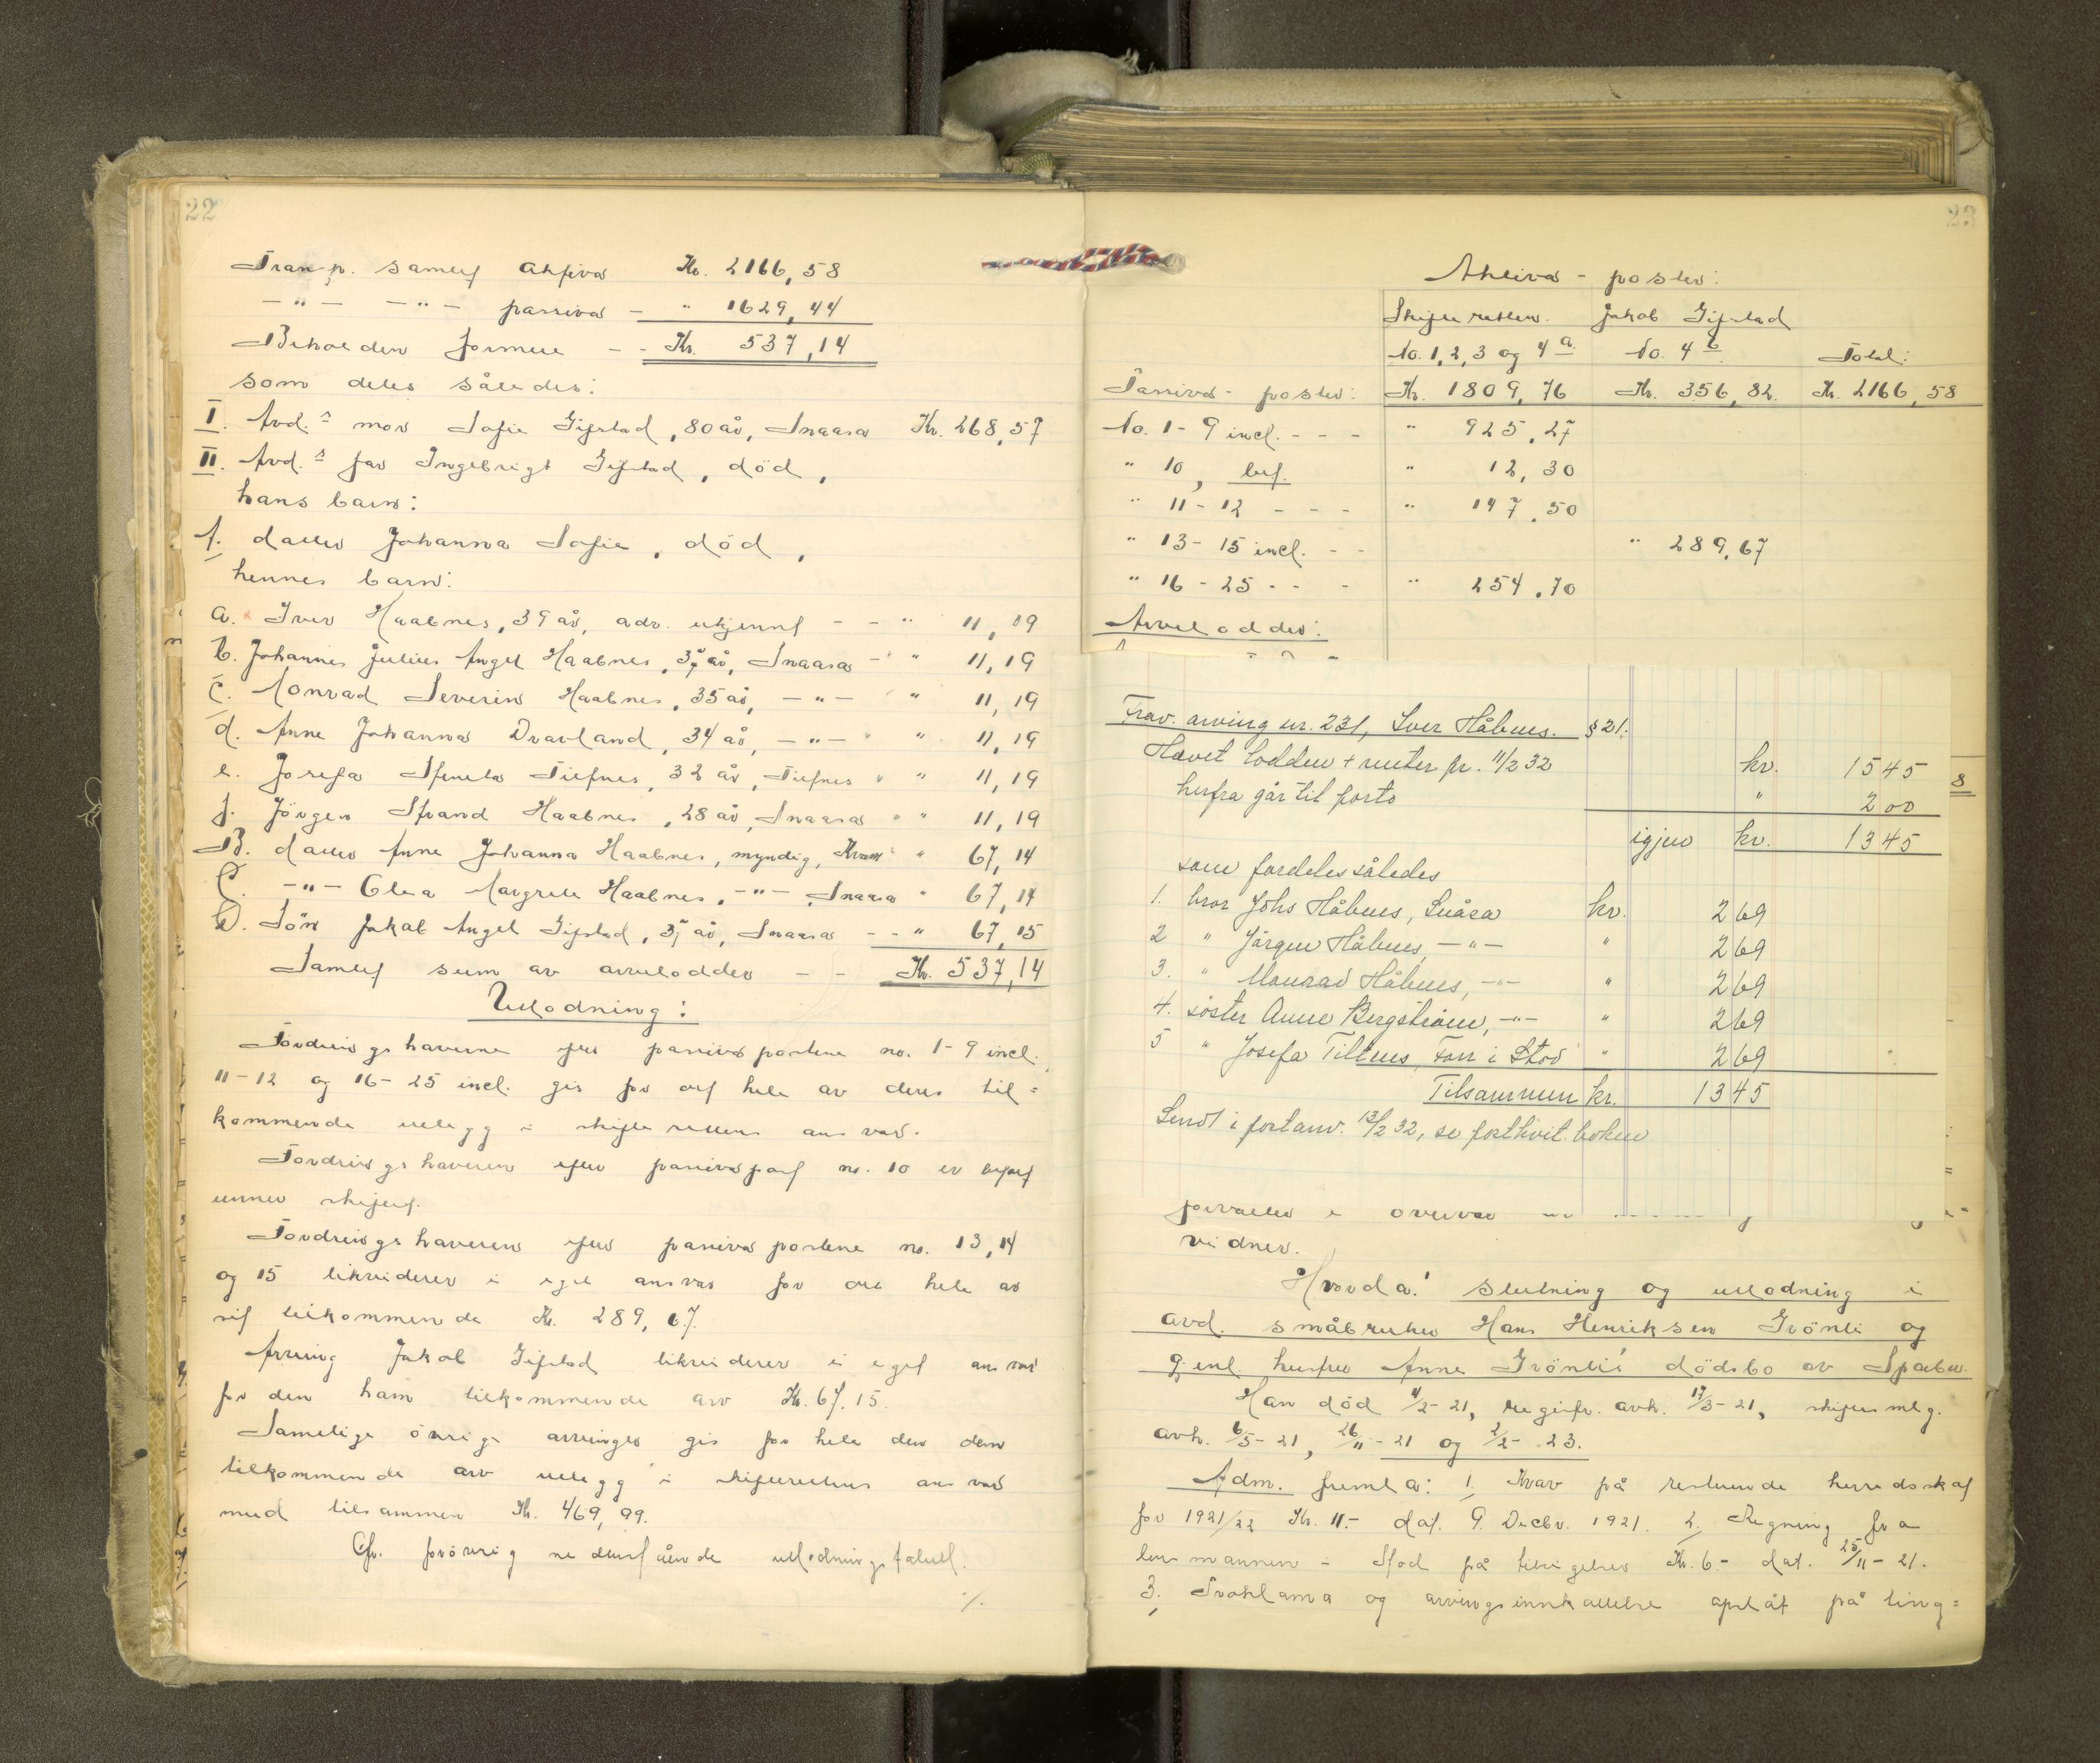 22
Transp. samlet aktiva Kr. 2166,58
—"— —"— passiva — " 1629,44
Beholden formue - - Kr. 537,14
som deles således:
I. Avd.s mor Sofie Gifstad, 80 år, Snaasa Kr. 268,57
II. Avd.s far Ingebrigt Gifstad, död,
hans barn:
A. datter Johanna Sofie, död,
hennes barn:
a. Iver Haabnes, 39 år, adr. ukjennt - - " 11,19
b. Johannes Julius Angel Haabnes, 37 år, Snaasa - " 11,19
c. Konrad Severin Haabnes, 35 år, —"— " 11,19
d. Anne Johanna Dravland, 34 år, —"— " " 11,19
e. Josefa 32 år, " " 11,19
f. Jörgen Strand Haabnes, 28 år, Snaasa " " 11,19
B. datter Anne Johanna Haabnes, myndig, Kvam " 67,14
C. —"— Olea Margrete Haabnes, —"— Snaasa " 67,14
D. Sön Jakob Angel Gifstad, 37 år, Snaasa - - " 67,15
Samlet sum av arvelodder - - Kr. 537,14
Utlodning:
Fordringshaverne efter passivapostene no. 1-9 incl.,
11-12 og 16-25 incl. gis for det hele av deres til=
kommende utlegg i skifterettens ansvar.
Fordringshaveren efter passivapost no. 10 er betalt
unner skiftet.
Fordringshaveren efter passivapostene no. 13, 14
og 15 likviderer i eget ansvar for det hele av
sit tilkommende Kr. 289,67.
Arving Jakob Gifstad likviderer i eget ansvar
for den ham tilkommende arv Kr. 67,15.
Samtlige övrige arvinger gis for hele den dem
tilkommende arv utlegg i skifterettens ansvar
med tilsammen Kr. 469,99.
Cfr. forövrig nedenstående utlodningstabell.
./.
23
Aktiva - poster:
Skifteretten. Jakob Gifstad
No. 1, 2, 3 og 4 a. No. 4 b. Total:
Passiva - poster: Kr. 1809,76 Kr. 356,82. Kr. 2166,58
No. 1-9 incl. - - - " 925,27
" 10, bet. " 12,30
" 11-12 - - - " 147,50
" 13-15 incl. - - " 289,67
" 16-25 - - - " 254,70
Arvelodder:
Frav. arving nr. 231, Iver Håbnes. § 21:
Hævet lodden + renter pr. 11/2 32 kr. 1545
herfra går til porto " 200
8
igjen kr. 1345
som fordeles således
1. bror Johs Håbnes, Snåsa kr. 269
2 " Jörgen Håbnes, —"— " 269
3. " Konrad Håbnes, —"— " 269
4. söster Anne Bergström, —"— " 269
5 " Josefa Tiltnes, Forr i Stod " 269
Tilsammen kr. 1345
Sendt i postanv. 13/2 32, se postkvit. boken
vidner.
Hvorda: slutning og utlodning i
avd. småbruker Hans Henriksen Grönli og
gjenl. hustru Anne Grönli's dödsbo av Sparbu.
Han död 4/2-21, registr. avh. 17/3-21, skiftesmlg.
avh. 6/5-21, 26/11-21 og 2/2-23.
Adm. fremla: 1. Krav på resterende herredsskat
for 1921/22 Kr. 11.- dat. 9. Decbr. 1921. 2. Regning fra
lensmannen i Stod på Kr. 6.- dat. 25/11-21.
3. Proklama og arvingsinnkallelse oplåt på ting=